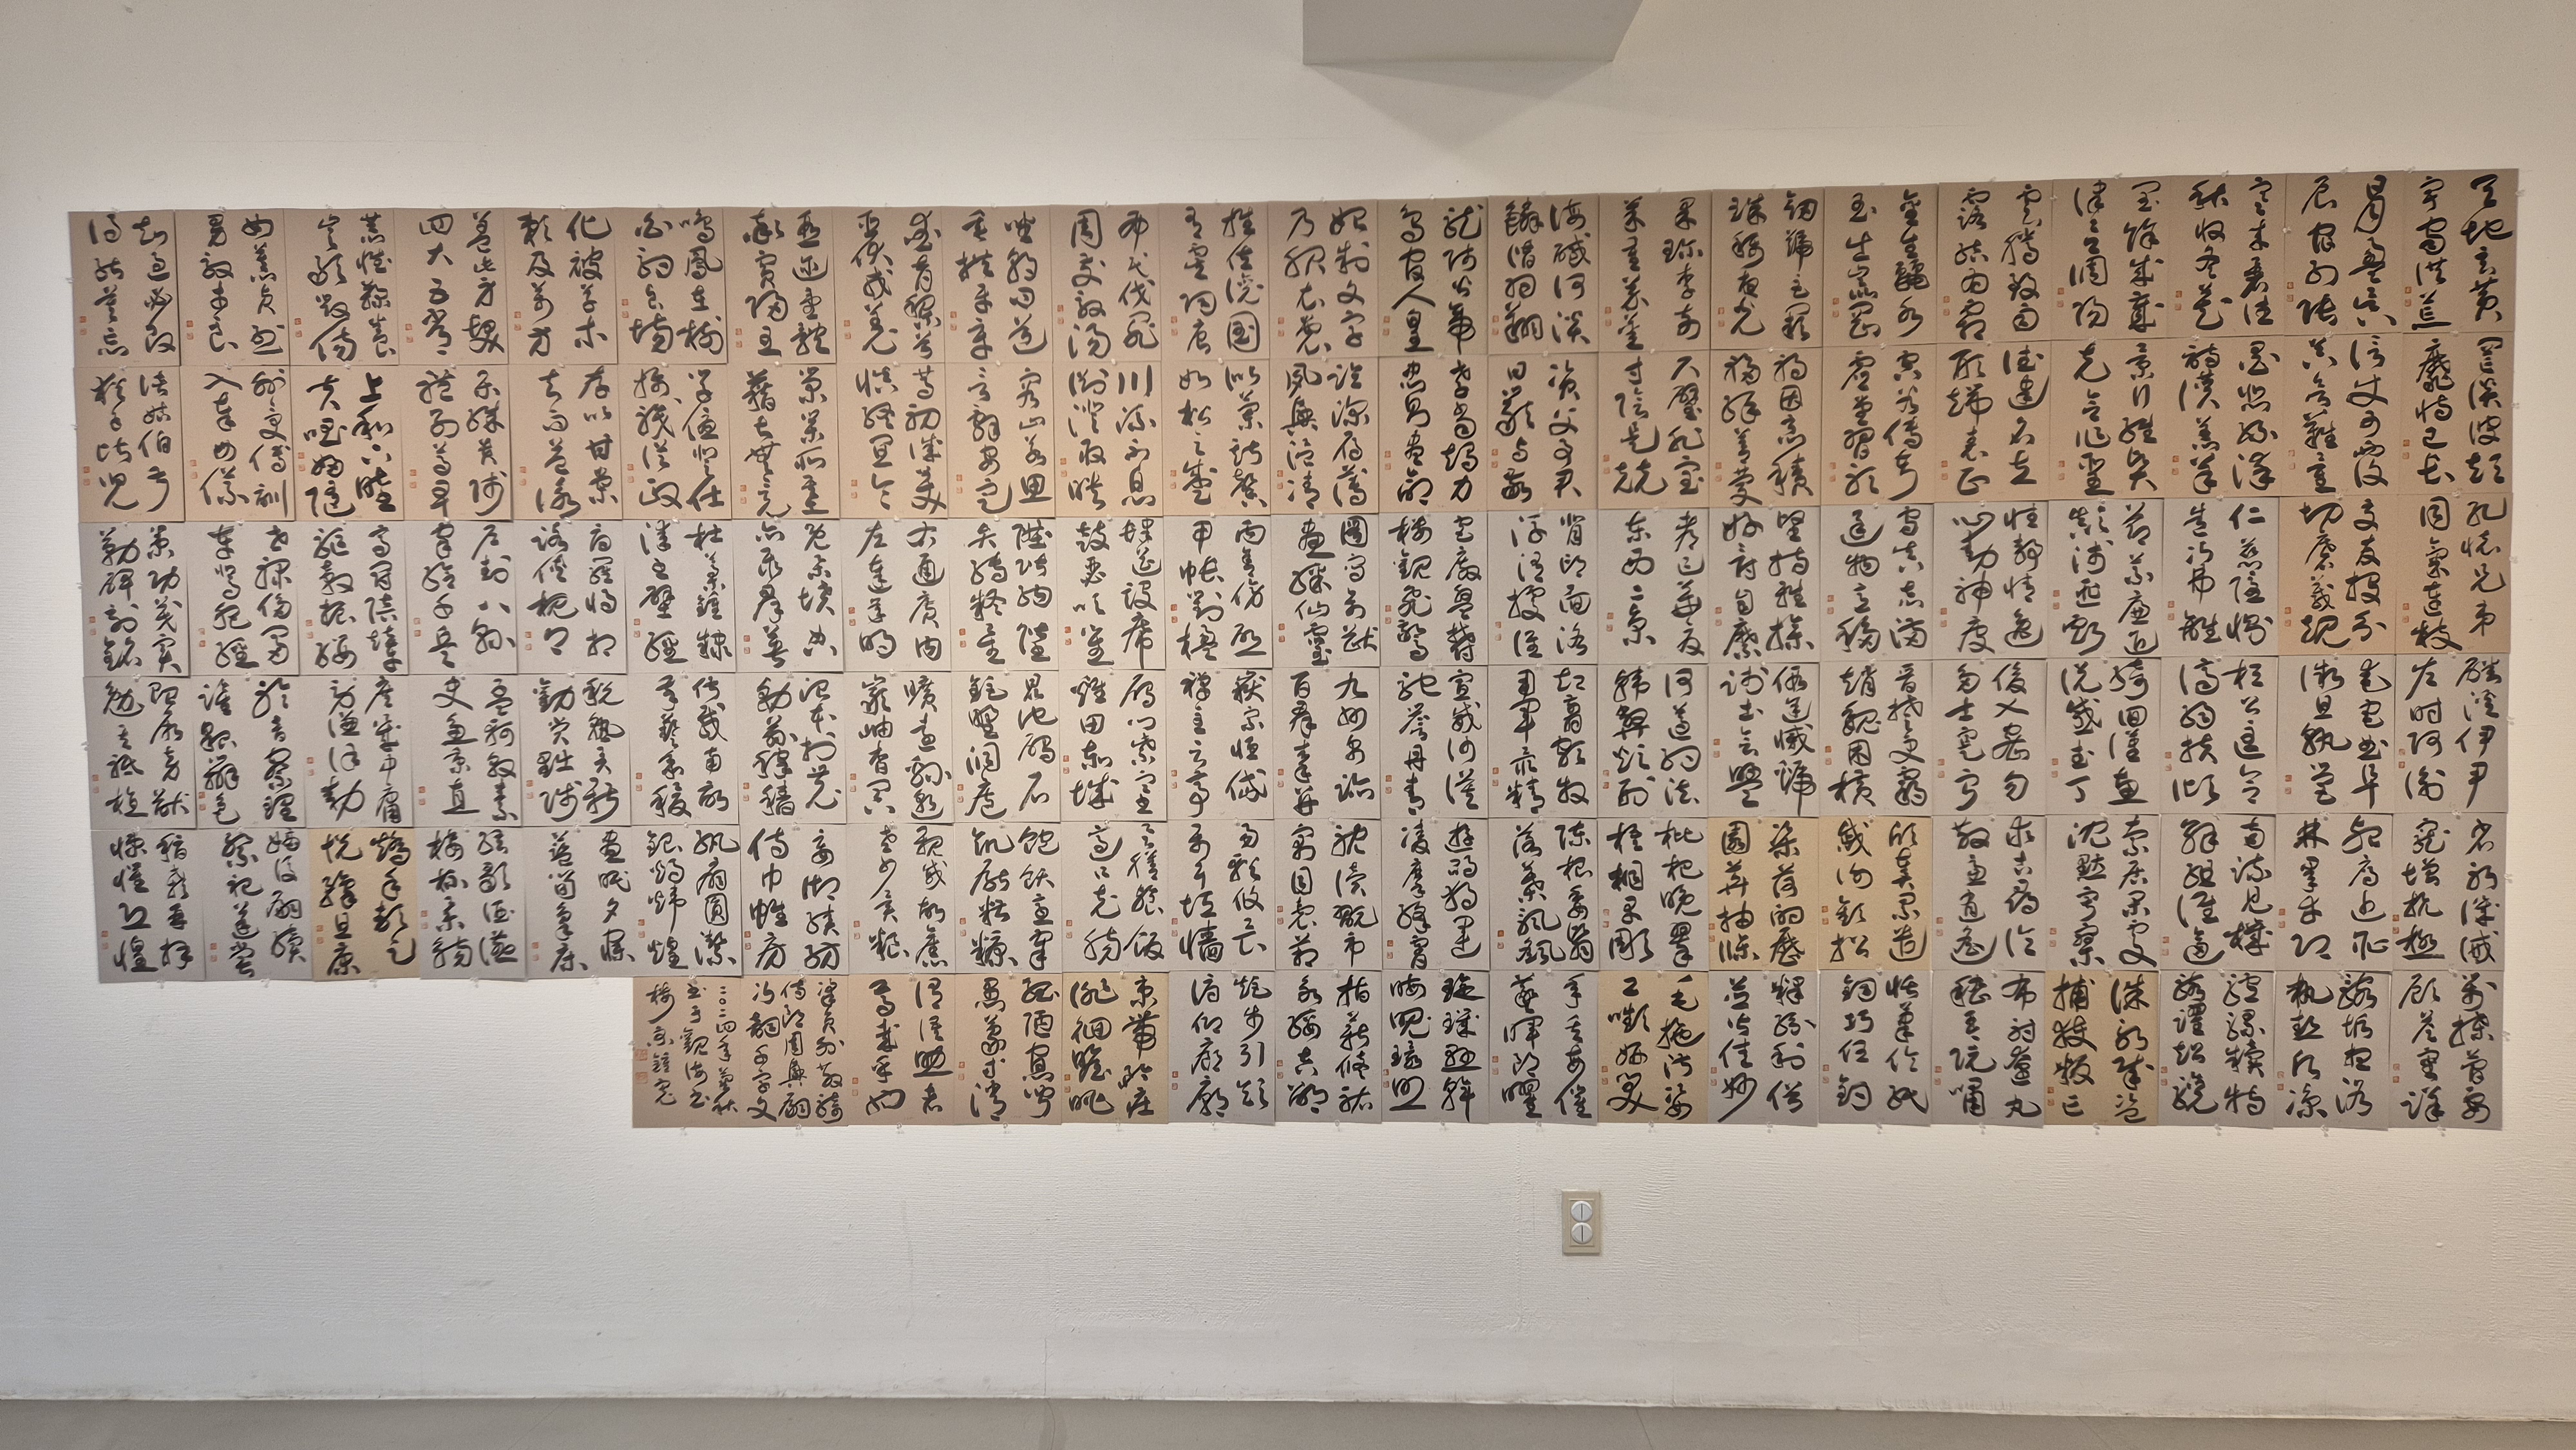 天地玄黃
宇宙洪荒
日月盈昃
辰宿列張
寒來暑往
秋收冬藏
閏餘成歲
律呂調陽
雲騰致雨
露結為霜
金生麗水
玉出崑岡
劍號巨闕
珠稱夜光
果珍李柰
菜重芥薑
海鹹河淡
鱗潛羽翔
龍師火帝
鳥官人皇
始制文字
乃服衣裳
推位讓國
有虞陶唐
弔民伐罪
周發殷湯
坐朝問道
垂拱平章
愛育黎首
臣伏戎羌
遐邇壹體
率賓歸王
鳴鳳在樹
白駒食場
化被草木
賴及萬方
蓋此身髮
四大五常
恭惟鞠養
豈敢毀傷
女慕貞烈
男效才良
知過必改
得能莫忘
罔談彼短
靡恃己長
信使可覆
器欲難量
墨悲絲染
詩讚羔羊
景行維賢
克念作聖
德建名立
形端表正
空谷傳聲
虛堂習聽
禍因惡積
福緣善慶
尺璧非寶
寸陰是競
資父事君
曰嚴與敬
孝當竭力
忠則盡命
臨深履薄
夙興溫凊
似蘭斯馨
如松之盛
川流不息
淵澄取映
容止若思
言辭安定
篤初誠美
慎終宜令
榮業所基
籍甚無竟
學優登仕
攝職從政
存以甘棠
去而益詠
樂殊貴賤
禮別尊卑
上和下睦
夫唱婦隨
外受傅訓
入奉母儀
諸姑伯叔
猶子比兒
孔懷兄弟
同氣連枝
交友投分
切磨箴規
仁慈隱惻
造次弗離
節義廉退
顛沛匪虧
性靜情逸
心動神疲
守真志滿
逐物意移
堅持雅操
好爵自縻
都邑華夏
東西二京
背邙面洛
浮渭據涇
宮殿盤鬱
樓觀飛驚
圖寫禽獸
畫綵仙靈
丙舍傍啟
甲帳對楹
肆筵設席
鼓瑟吹笙
陞階納陛
弁轉疑星
右通廣內
左達承明
既集墳典
亦聚群英
杜稾鍾隸
漆書壁經
府羅將相
路俠槐卿
戶封八縣
家給千兵
高冠陪輦
驅轂振纓
世祿侈富
車駕肥輕
策功茂實
勒碑刻銘
磻溪伊尹
佐時阿衡
奄宅曲阜
微旦孰營
桓公匡合
濟弱扶傾
綺迴漢惠
說感武丁
俊乂密勿
多士寔寧
晉楚更霸
趙魏困橫
假途滅虢
踐土會盟
何遵約法
韓弊煩刑
起翦頗牧
用軍最精
宣威沙漠
馳譽丹青
九州禹跡
百郡秦并
嶽宗恆岱
禪主云亭
雁門紫塞
雞田赤城
昆池碣石
鉅野洞庭
曠遠緜邈
巖岫杳冥
治本於農
務茲稼穡
俶載南畝
我藝黍稷
稅熟貢新
勸賞黜陟
孟軻敦素
史魚秉直
庶幾中庸
勞謙謹敕
聆音察理
鑑貌辨色
貽厥嘉猷
勉其祗植
省躬譏誡
寵增抗極
殆辱近恥
林皋幸即
兩疏見機
解組誰逼
索居閒處
沉默寂寥
求古尋論
散慮逍遙
欣奏累遣
慼謝歡招
渠荷的歷
園莽抽條
枇杷晚翠
梧桐早凋
陳根委翳
落葉飄颻
遊鵾獨運
凌摩絳霄
耽讀翫市
寓目囊箱
易輶攸畏
屬耳垣牆
具膳餐飯
適口充腸
飽飫烹宰
飢厭糟糠
親戚故舊
老少異糧
妾御績紡
侍巾帷房
紈扇圓潔
銀燭煒煌
晝眠夕寐
藍筍象床
絃歌酒讌
接杯舉觴
矯手頓足
悅豫且康
嫡後嗣續
祭祀蒸嘗
稽顙再拜
悚懼恐惶
牋牒簡要
顧答審詳
骸垢想浴
執熱願涼
驢騾犢特
駭躍超驤
誅斬賊盜
捕獲叛亡
布射遼丸
嵇琴阮嘯
恬筆倫紙
鈞巧任釣
釋紛利俗
並皆佳妙
毛施淑姿
工顰妍笑
年矢每催
羲暉朗曜
璇璣懸斡
晦魄環照
指薪修祜
永綏吉劭
矩步引領
俯仰廊廟
束帶矜莊
徘徊瞻眺
孤陋寡聞
愚蒙等誚
謂語助者
焉哉乎也
梁員外散騎
侍郎周興嗣
次韻千字文
二〇二四年 秋
書于觀海
樓